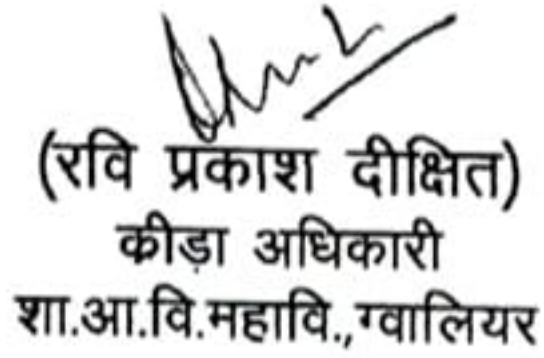 (रवि प्रकाश दीक्षित)
कीड़ा अधिकारी
शा.आ.वि.महावि.,ग्वालियर